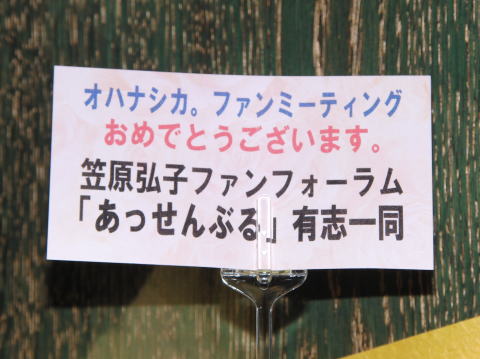 オハナシカ。ファンミーティング
おめでとうございます。
笠原弘子ファンフォーラム
「あっせんぶる」有志一同